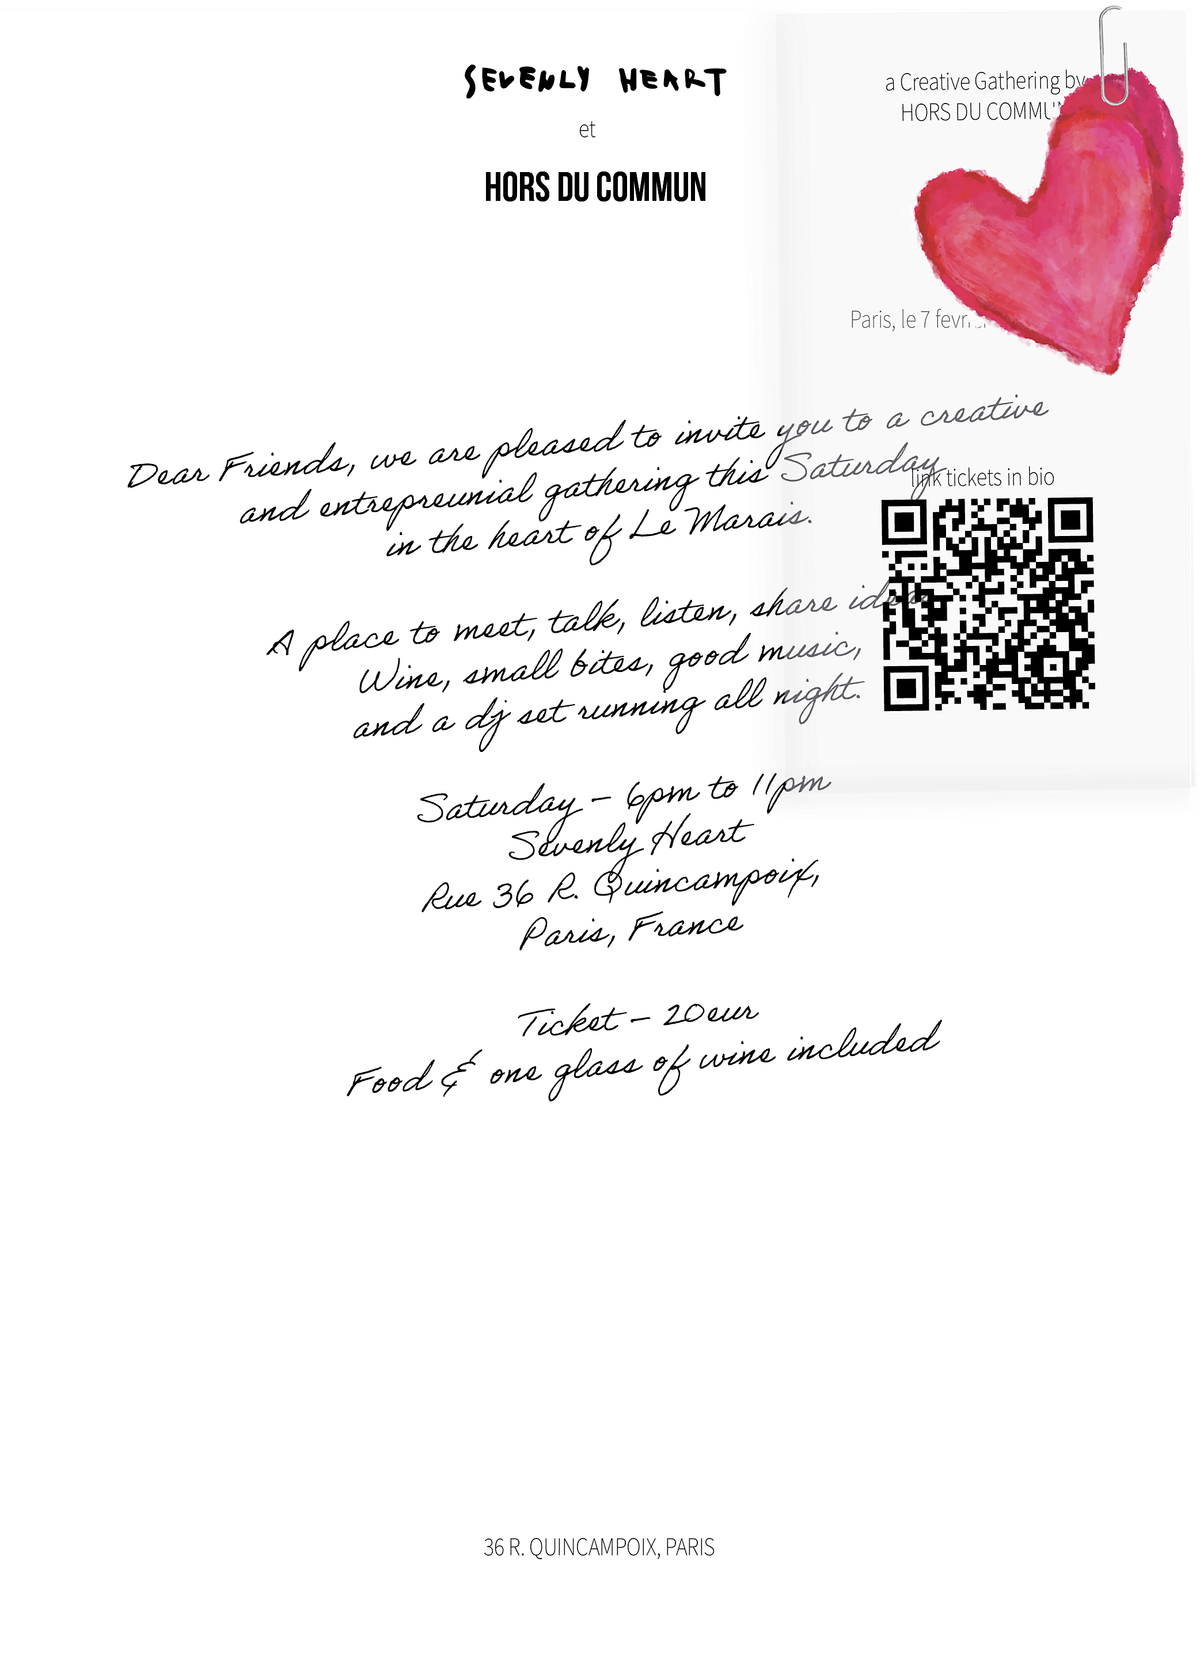 SEVENLY HEART
et
HORS DU COMMUN
a Creative Gathering by
HORS DU
Paris, le 7
Dear Friends, we are pleased to invite you to a creative
and entrepreunial gathering this Saturday
in the heart of Le Marais.
link tickets in bio
A place to meet, talk, listen, share
Wine, small bites, good music,
and a dj set running all night.
Saturday – 6pm to 11pm
Sevenly Heart
Rue 36 R. Quincampoix,
Paris, France
Ticket – 20eur
Food & one glass of wine included
36 R. QUINCAMPOIX, PARIS